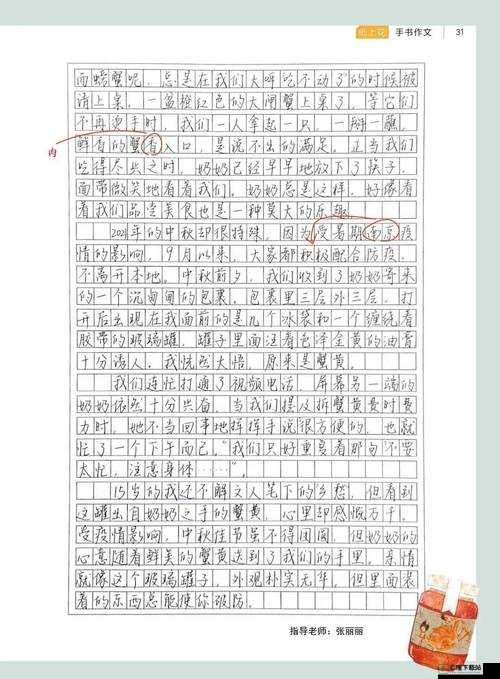 纸上花 手书作文 31
而螃蟹呢,总是在我们大呼吃不动了的时候被
请上桌。一盘橙红色的大闸蟹上桌了,等它们
不再烫手时,我们一人拿起一只,一掰一蘸,
鲜香的蟹香入口,是说不出的满足。正当我们
肉
吃得尽兴之时,奶奶已经早早地放下了筷子,
面带微笑地看着我们。奶奶总是这样,好像看
着我们品尝美食也是一种莫大的乐趣。
2021年的中秋却很特殊,因为受暑期南京疫
情的影响,9月以来,大家都积极配合防疫,
不离开本地。中秋前夕,我们收到了奶奶寄来
的一个沉甸甸的包裹,包裹里三层外三层,打
开后出现在我面前的是几个冰袋和一个缠绕着
胶带的玻璃罐,罐子里面泛着色泽金黄的油膏
十分诱人,我恍然大悟,原来是蟹黄。
我们连忙打通了视频电话,屏幕另一端的
奶奶依然十分兴奋,当我们提及拆蟹黄费时费
力时,她不当回事地挥挥手说很方便的,也就
忙了一个下午而已。“我们只好重复着那句“不要
太忙,注意身体……”
15岁的我还不解文人笔下的乡愁,但看到
这罐出自奶奶之手的蟹黄,心里却感慨万千。
受疫情影响,中秋佳节虽不得团圆,但奶奶的
心意随着鲜美的蟹黄送到了我们的手里。亲情
就像这个玻璃罐子,外观朴实无华,但里面装
着的东西总能使你破防。
指导老师:张丽丽